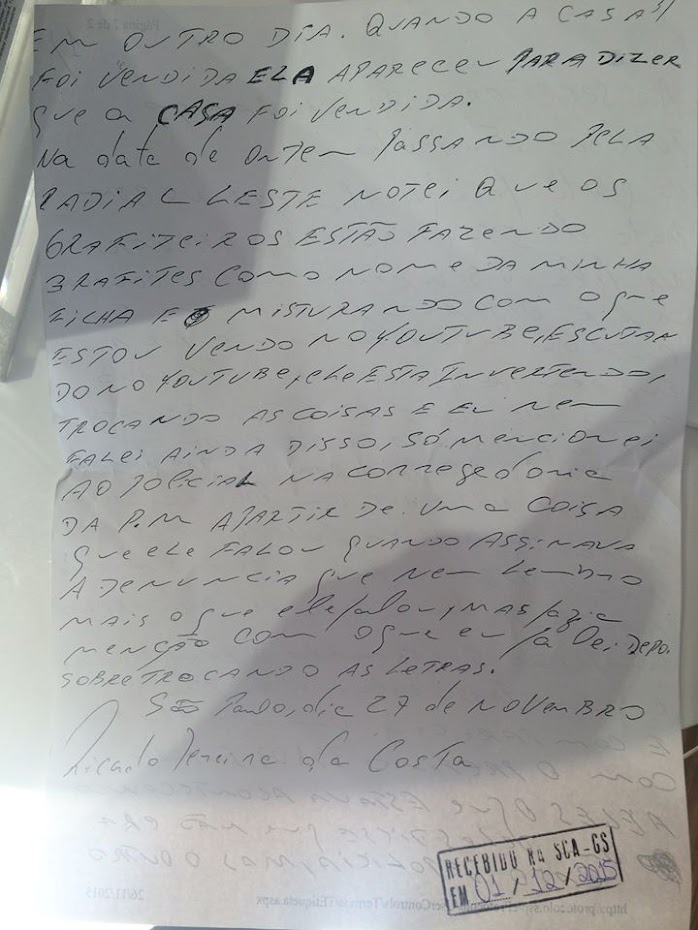 EM OUTRO DIA. QUANDO A CASA
FOI VENDIDA ELA APARECEU PARA DIZER
que a CASA FOI VENDIDA.
Na data de ontem PASSANDO PELA
RADIAL LESTE NOTEI QUE OS
GRAFITEIROS ESTÃO FAZENDO
GRAFITES COM O NOME DA MINHA
FILHA E MISTURANDO COM O que
ESTOU VENDO NO YOUTUBE, ESCUTAN
DO NO YOUTUBE, ele ESTA INVERTENDO,
TROCANDO AS COISAS E EU nem
FALEI AINDA DISSO, SÓ mencionei
AO POLICIAL NA corregedoria
DA P.M APARTIR DE uma COISA
que ele FALOU QUANDO ASSINAVA
A DENUNCIA que nem Lembro
MAIS o que ele falou, MAS fazia
menção com o que eu já Dei Depo.
SOBRE TROCANDO AS LETRAS.
São Paulo, dia 27 de NOVEMBRO
Ricardo Pereira da Costa
RECEBIDO NA SCA-GS
EM 01/12/2015
26/11/2015